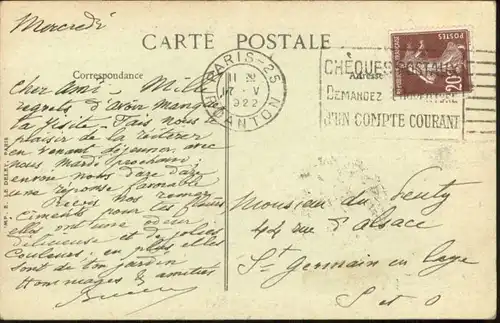 Mercredi
CARTE POSTALE
Correspondance
Adresse
PARIS-25
17 - V
1922
R. DANTON
CHÈQUES POSTAUX
DEMANDEZ L'OUVERTURE
D'UN COMPTE COURANT
20c
Cher Ami - Mille
regrets d'avoir manqué
ta visite. Fais nous le
plaisir de la réitérer
en venant déjeuner avec
nous Mardi prochain,
envoie nous
une réponse favorable
Reçois nos remer-
ciments pour tes fleurs
elles ont une odeur
délicieuse et de jolies
couleurs, en plus elles
sont de ton jardin
Hommages & amitiés
Monsieur du
44 rue d'Alsace
St Germain en Laye
S et O
IMP. E. LE DELEY, PARIS